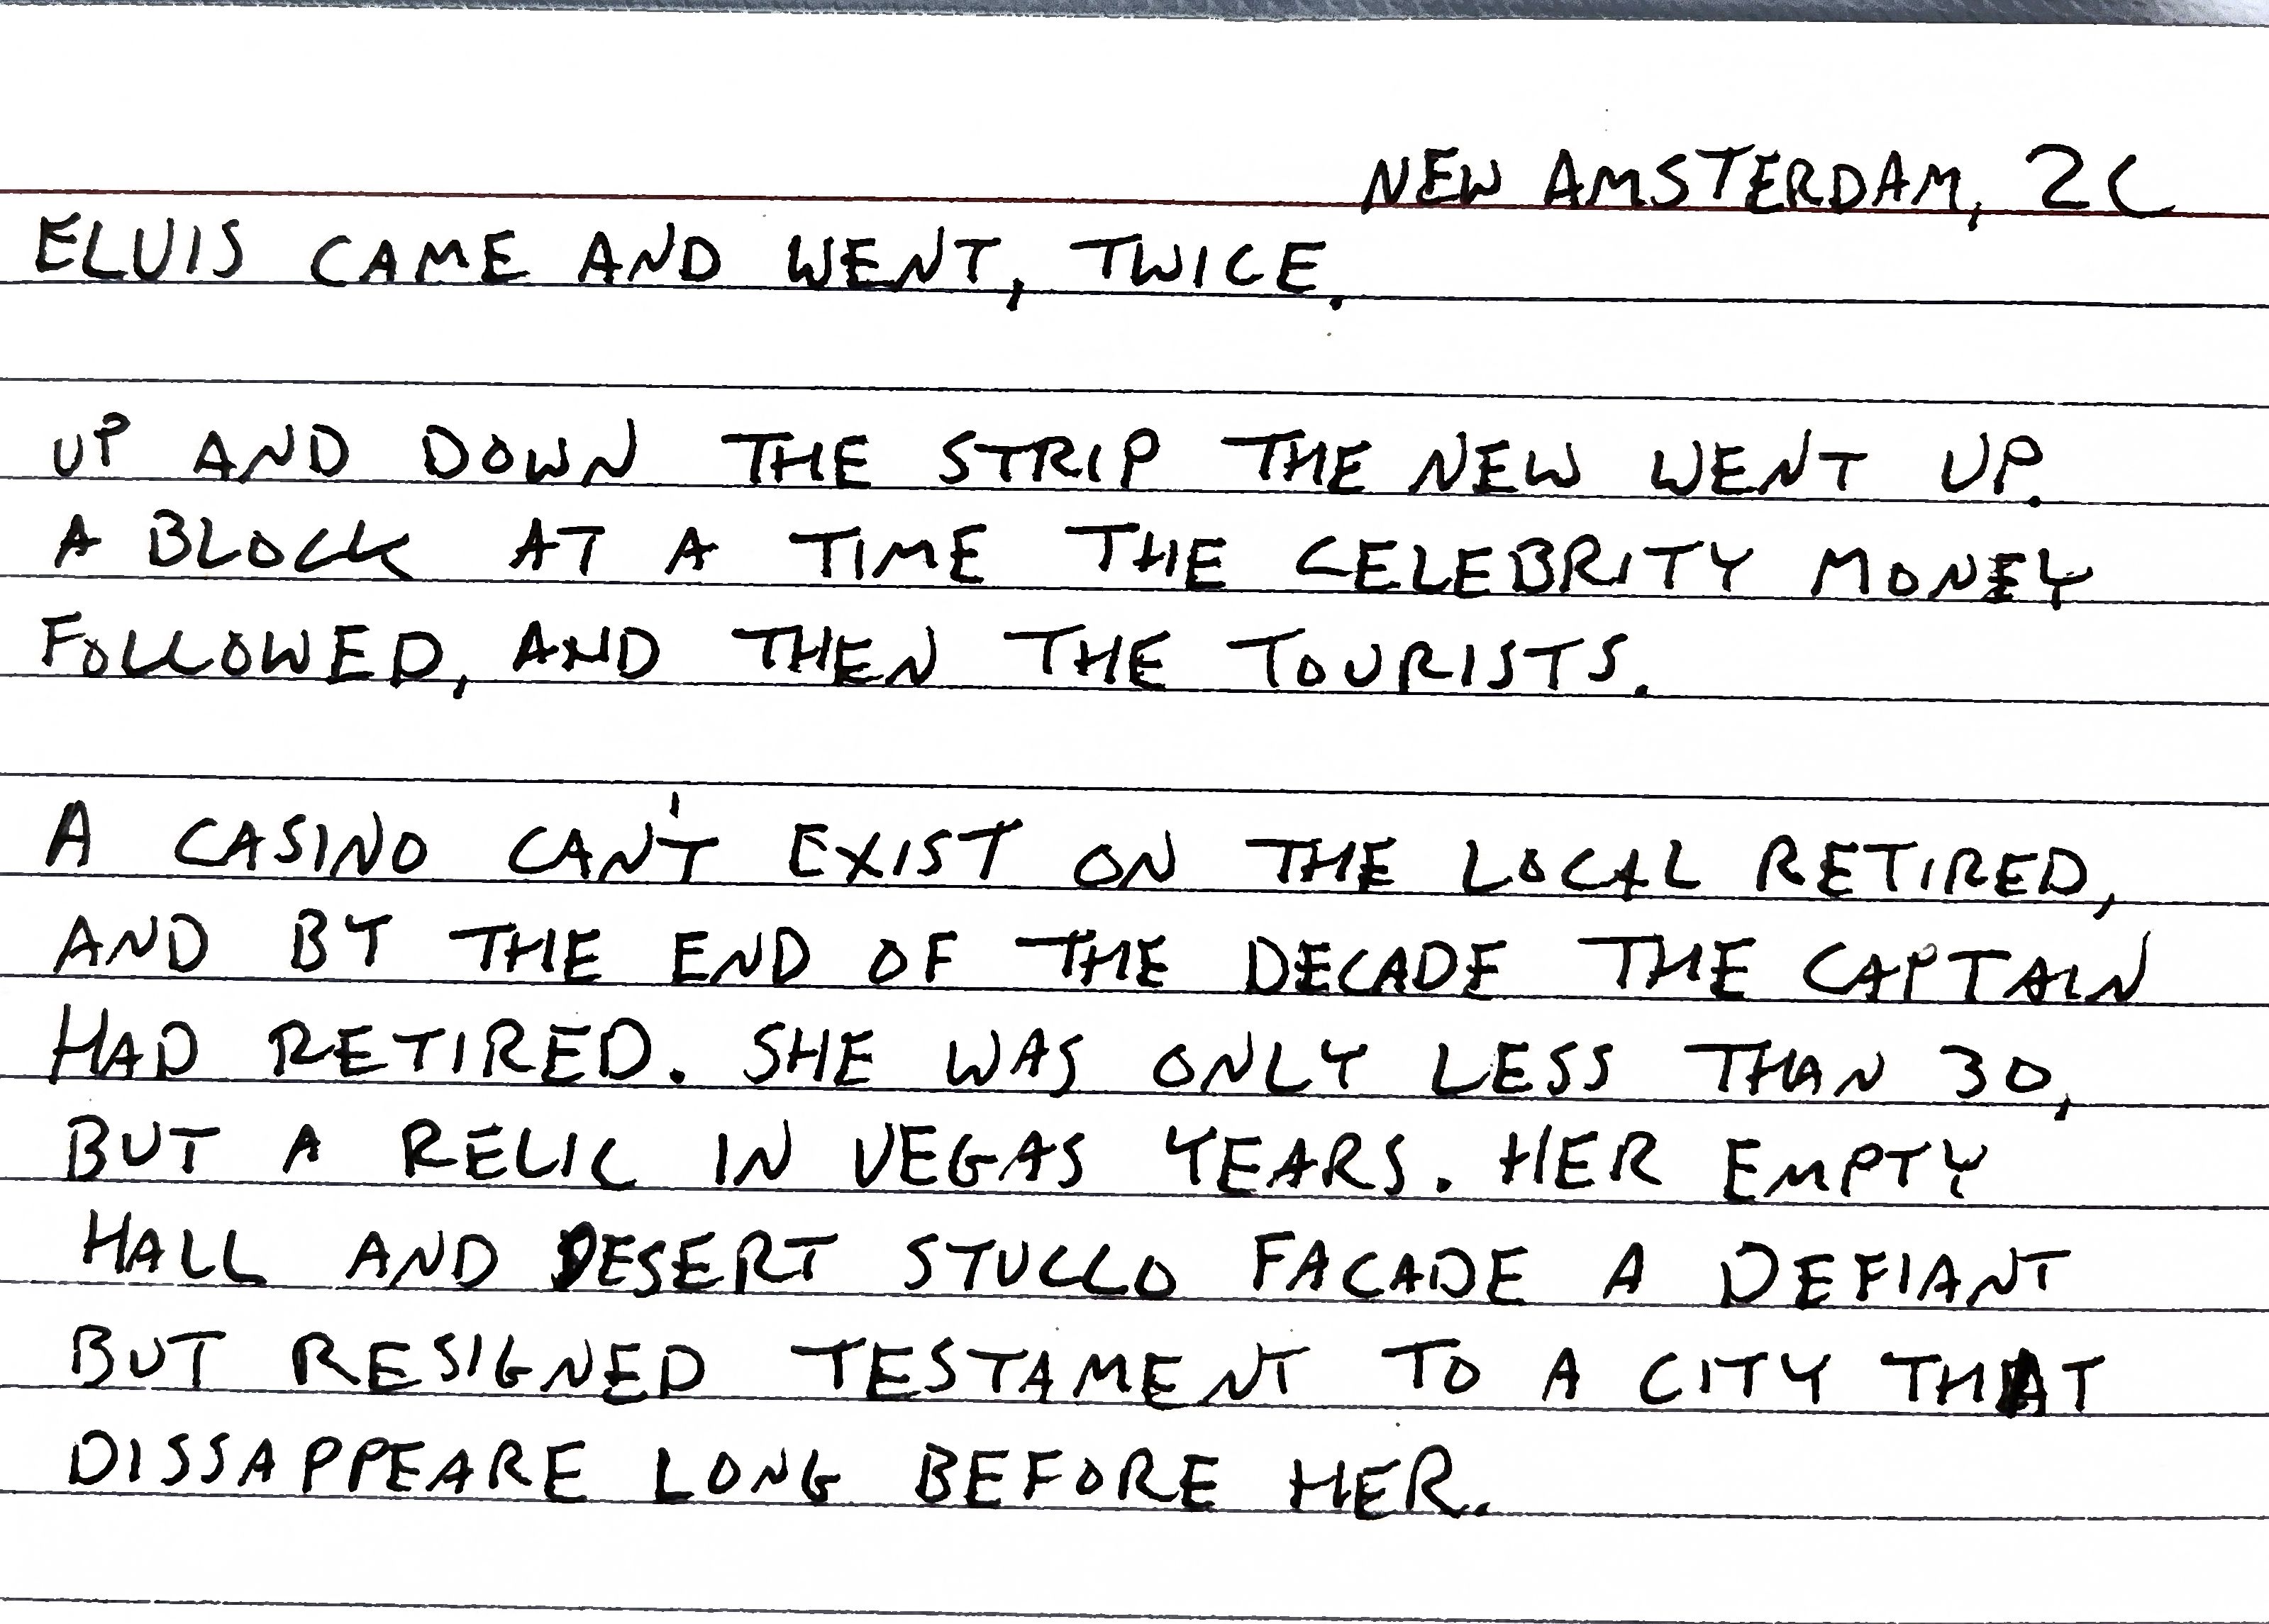 NEW AMSTERDAM, 2C
ELVIS CAME AND WENT, TWICE.
UP AND DOWN THE STRIP THE NEW WENT UP.
A BLOCK AT A TIME THE CELEBRITY MONEY
FOLLOWED, AND THEN THE TOURISTS.
A CASINO CAN'T EXIST ON THE LOCAL RETIRED,
AND BY THE END OF THE DECADE THE CAPTAIN
HAD RETIRED. SHE WAS ONLY LESS THAN 30,
BUT A RELIC IN VEGAS YEARS. HER EMPTY
HALL AND DESERT STUCCO FACADE A DEFIANT
BUT RESIGNED TESTAMENT TO A CITY THAT
DISSAPPEARE LONG BEFORE HER.